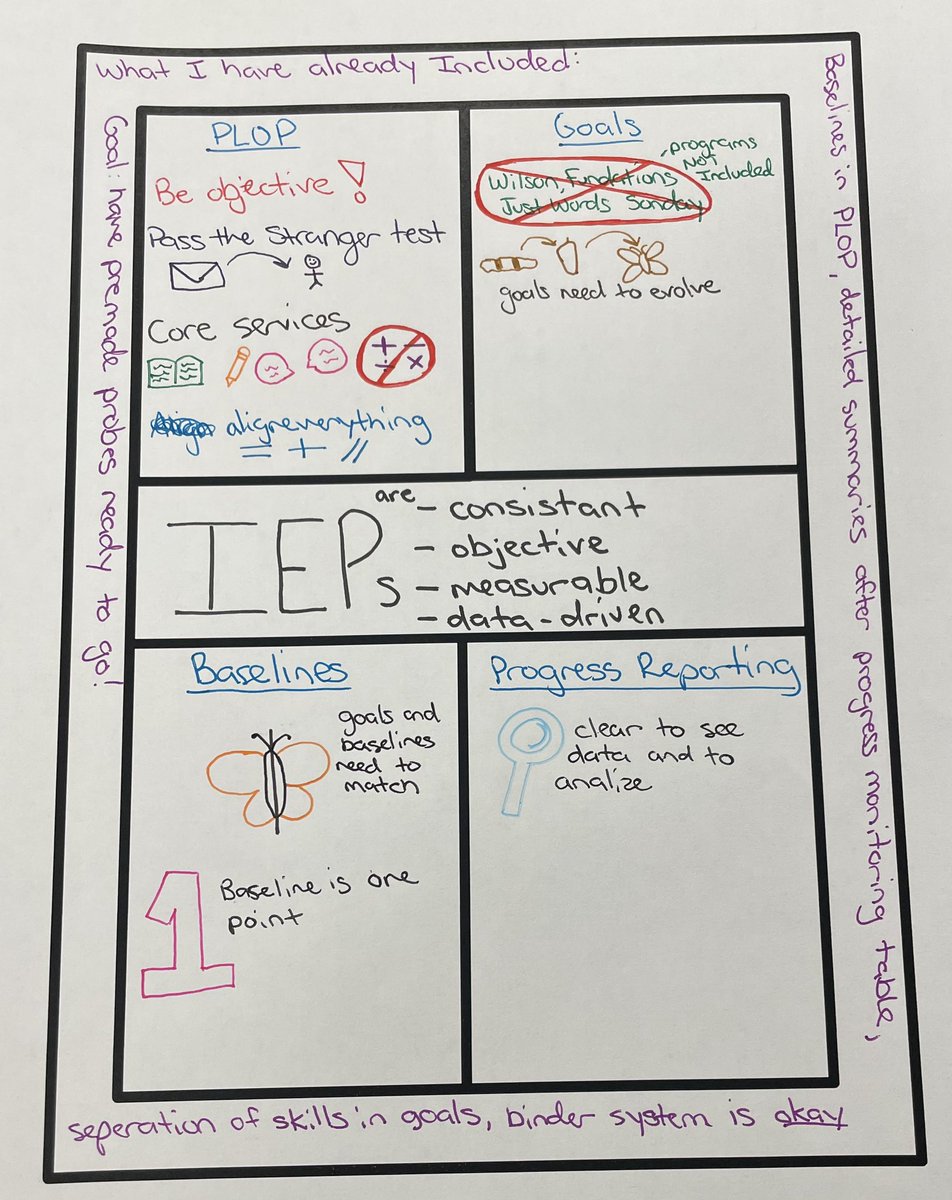 What I have already Included:
Baselines in PLOP, detailed summaries after progress monitoring table,
seperation of skills in goals, binder system is okay
Goal: have premade probes ready to go!
PLOP
Be objective!
Pass the Stranger test
Core services
+ -
÷ x
align everything
= + //
Goals
Wilson, Fundations
Just Words Sonday
programs
NOT
Included
goals need to evolve
IEPs
are - consistant
- objective
- measurable
- data-driven
Baselines
goals and
baselines
need to
match
1
Baseline is one
point
Progress Reporting
clear to see
data and to
analize